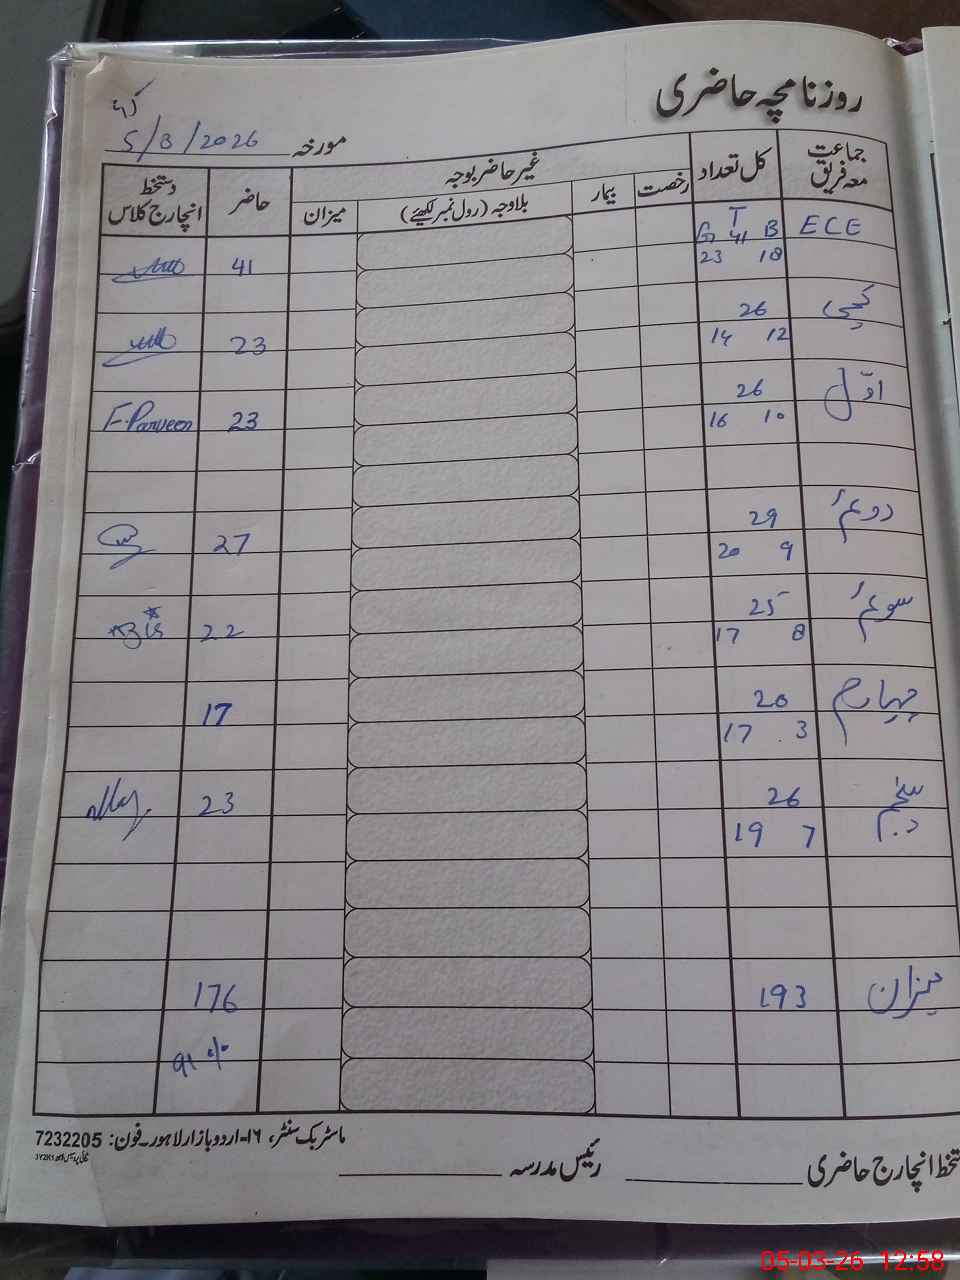 روزنامچہ حاضری
مورخہ 5/3/2026
جماعت معہ فریق کل تعداد غیر حاضر بوجہ حاضر دستخط انچارج کلاس
رخصت بیمار بلاوجہ (رول نمبر لکھیئے) میزان
ECE G T B
41 41
23 18
کچی 26
14 12 23
اوّل 26
16 10 23 F.Parveen
دوئم 29
20 9 27
سوئم 25
17 8 22
چہارم 20
17 3 17
پنجم 26 23
19 7
میزان 193 176
91 %
ماسٹر بک سنٹر، ۱۶-اردو بازار لاہور۔فون: 7232205
دستخط انچارج حاضری رئیس مدرسہ
05-03-26 12:58